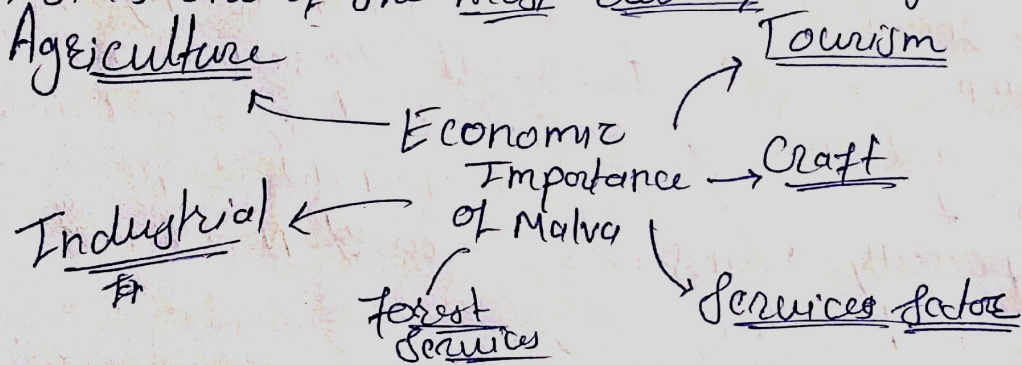 is one of the most
Agriculture
Tourism
Economic
Importance
of Malva
Craft
Industrial
Forest
Services
Services Sectors